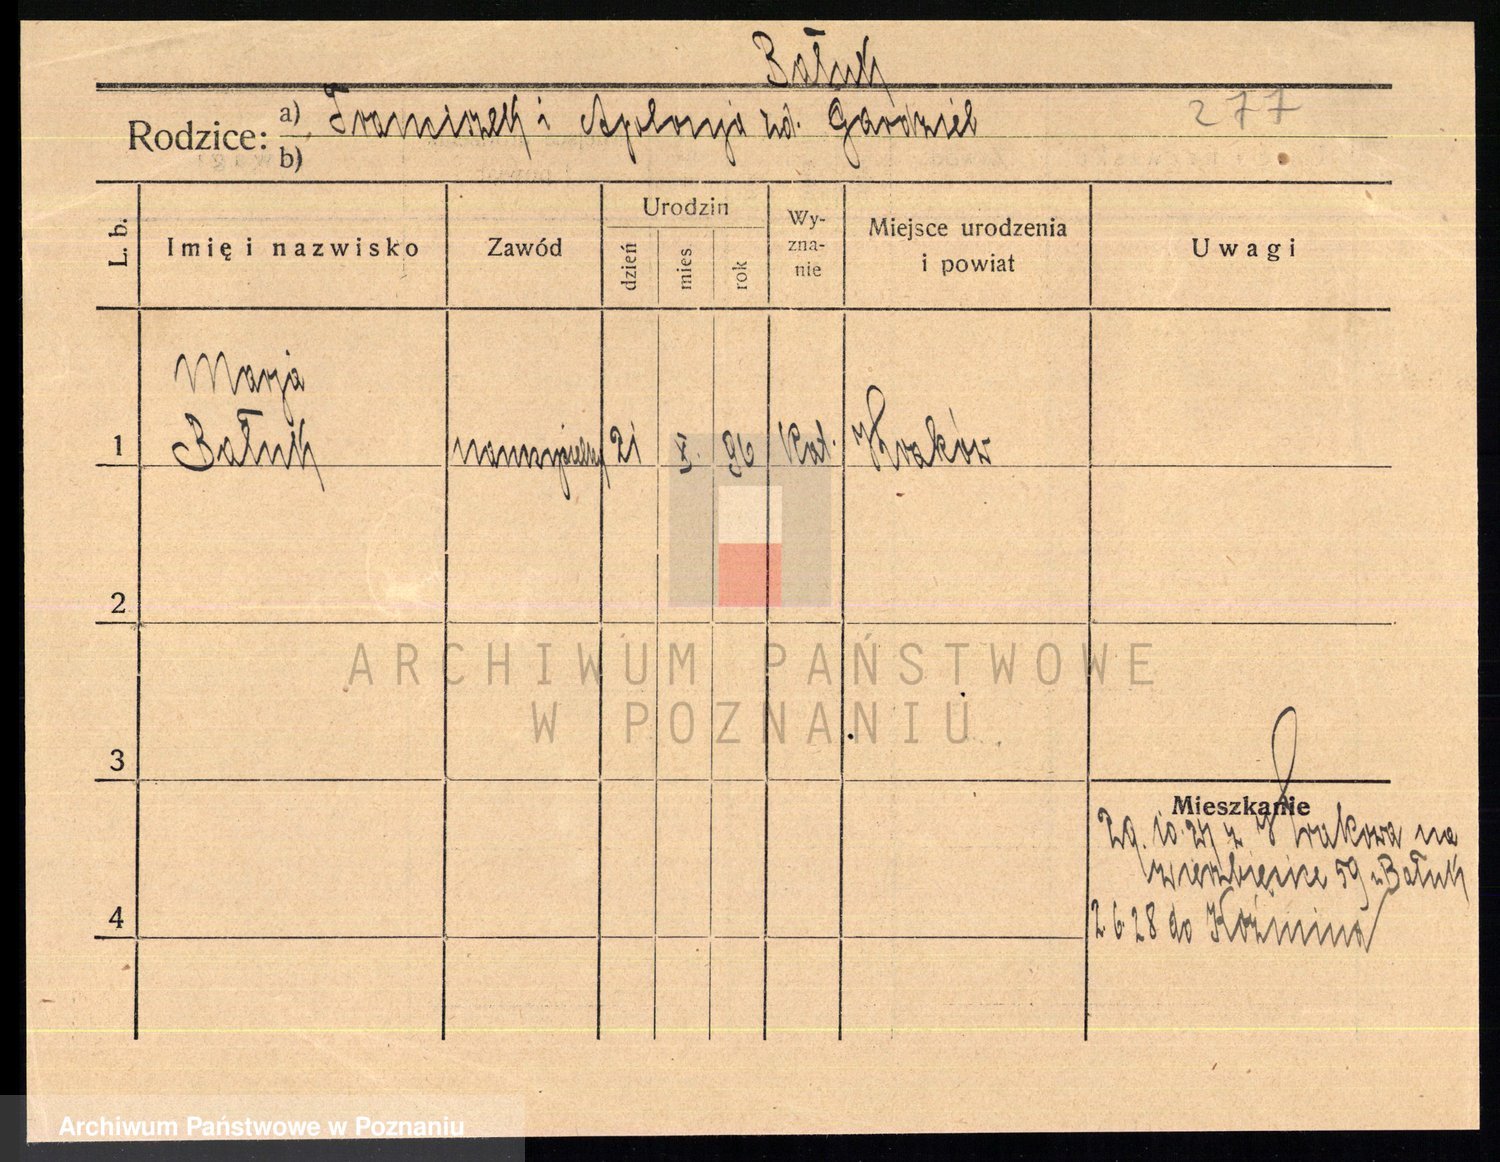 Bałuk
Rodzice: a) Franciszek i Apolonja zd. Gardziel 277
b)
L. b. Imię i nazwisko Zawód Urodzin dzień mies rok Wy-zna-nie Miejsce urodzenia i powiat Uwagi
Marja
1 Bałuk nauczycielka 21 X. 96 Kat. Kraków
2
ARCHIWUM PAŃSTWOWE
W POZNANIU
3
Mieszkanie
29. 10. 27 z Krakowa na
Wierzbięcice 59 u Bałuk
4 2 6 28 do Koźmina
Archiwum Państwowe w Poznaniu